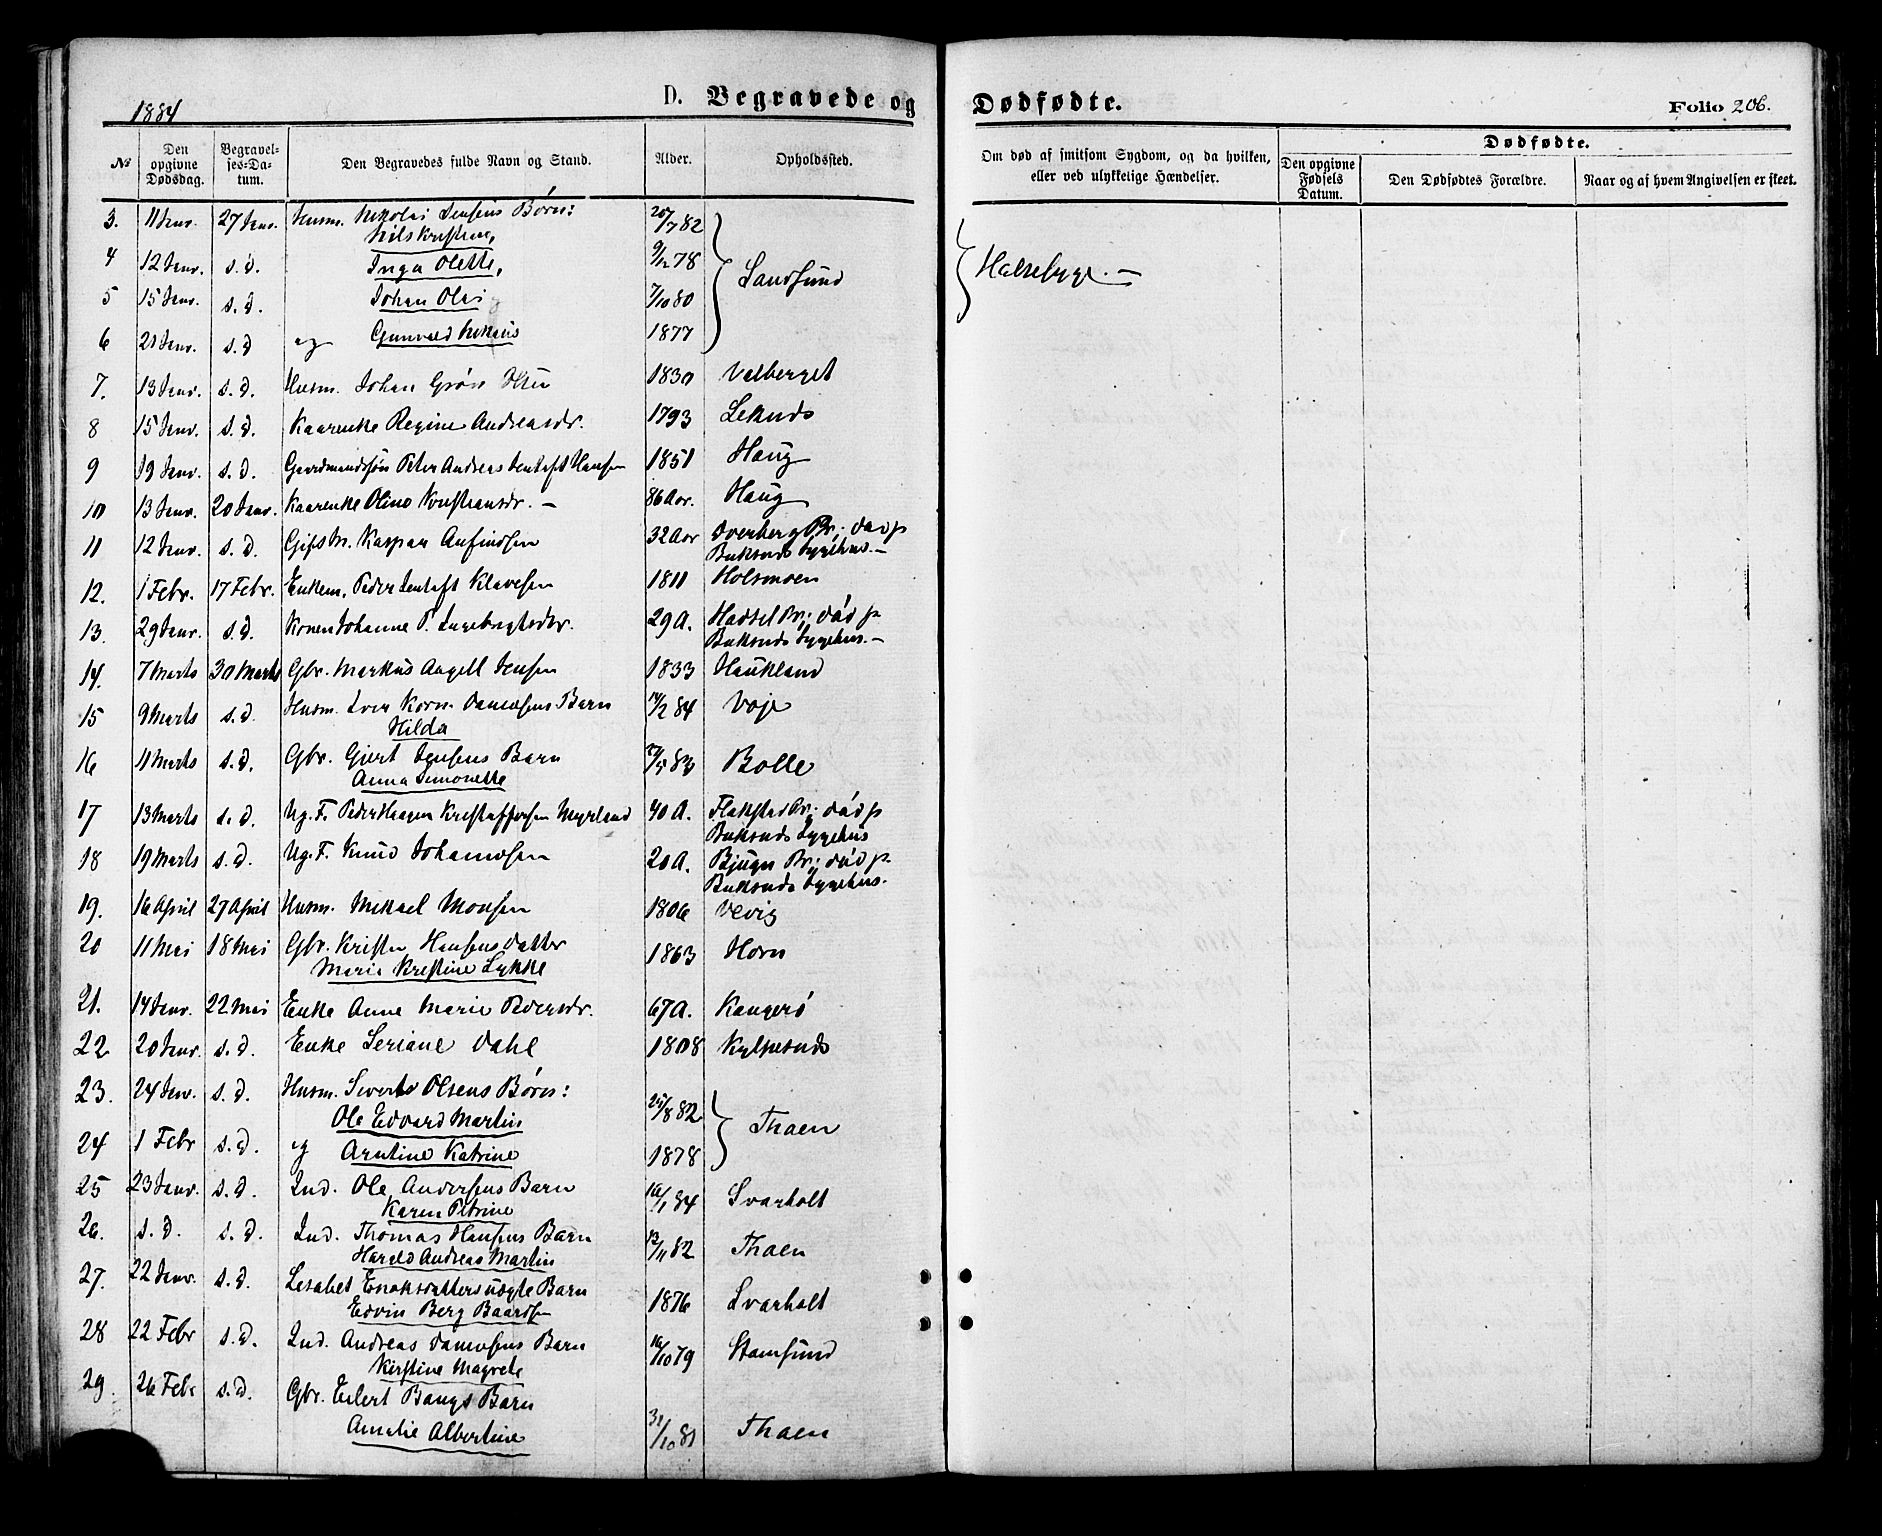 1884
D. Begravede og Dødfødte.
Folio 206.
№ Den opgivne Dødsdag. Begravelses-Datum. Den Begravedes fulde Navn og Stand. Alder. Opholdssted. Om død af smitsom Sygdom, og da hvilken, eller ved ulykkelige Hændelser. Dødfødte. Den opgivne Fødsels Datum. Den Dødfødtes Forældre. Naar og af hvem Angivelsen er skeet.
3. 11 Janr. 27 Janr. Husm. Nikolai Jensens Børn: 20/7 82
Nils Kristian,
4 12 Janr. s. d. Inga Olette, 9/12 78 Sandsund Halsesyge. —
5 15 Janr. s. d. Johan Olai 7/10 80
6 21 Janr. s. d og Gunvald Nikolai 1877
7. 13 Janr. s. d. Husm. Johan Grøn Olsen 1830 Valberget
8 15 Janr. s. d. Kaarenke Regine Andreasdr. 1793 Leknes
9 19 Janr. s. d. Gaardmandssøn Peter Andreas Jentoft Hansen 1851 Haug
10 13 Janr. 20 Janr. Kaarenke Oline Kristiansdr. — 86 Aar. Haug
11 12 Janr. s. d. Gift M. Kaspar Anfindsen 32 Aar Overberg Pr; død p
Buksnes Sygehus. —
12. 1 Febr. 17 Febr. Enkem. Peder Jentoft Klavesen 1811 Holsmoen
13. 29 Janr. s. d. Konen Johanne P. Ingebrigtsdr. 29 A. Hadsel Pr; død p
Buksnes Sygehus. —
14. 7 Marts 30 Marts Gbr. Markus Angell Jensen 1833 Haukland
15 9 Marts s. d. Husm. Iver Korn. Danielsens Barn 14/2 84 Voje
Hilda
16 11 Marts s. d. Gbr. Gjert Jensens Barn Bolle
Anna Simonette
17 13 Marts s. d. Ug. F. Peder Hagen Kristoffersen Myrland 40 A. Flakstad Pr; død p
Buksnes Sygehus
18 19 Marts s. d. Ug. F. Knud Johannesen 20 A. Bjugn Pr; død p
Buksnes Sygehus.
19. 16 April 27 April Husm. Mikael Monsen 1806 Vevig
20 11 Mai 18 Mai Gbr. Kristen Hansens datter 1863 Horn
Marie Kristine Lykke
21. 14 Janr. 22 Mai Enke Anne Marie Pedersdr. 67 A. Kangerø
22 20 Janr. s. d. Enke Seriane Dahl 1808 Kylpesnes
23. 24 Janr. s. d. Husm. Siverts Olsens Børn: 25/8 82
Ole Edvard Martin Thaen
24 1 Febr s. d. og Arntine Katrine 1878
25 23 Janr. s. d. Ind. Ole Andersens Barn 16/1 84 Svarholt
Karen Petrine
26. s. d. s. d. Ind. Thomas Hansens Barn 13/11 82 Thaen
Harald Andreas Martin
27. 22 Janr. s. d. Lisabet Enoksdatters uægte Barn 1876 Svarholt
Edvin Berg Baardsen
28 22 Febr s. d. Ind. Andreas Danielsens Barn 16/10 79 Stamsund
Kirstine Magrete
29. 26 Febr s. d. Gbr. Eilert Bangs Barn 31/10 81 Thaen
Amalie Albertine